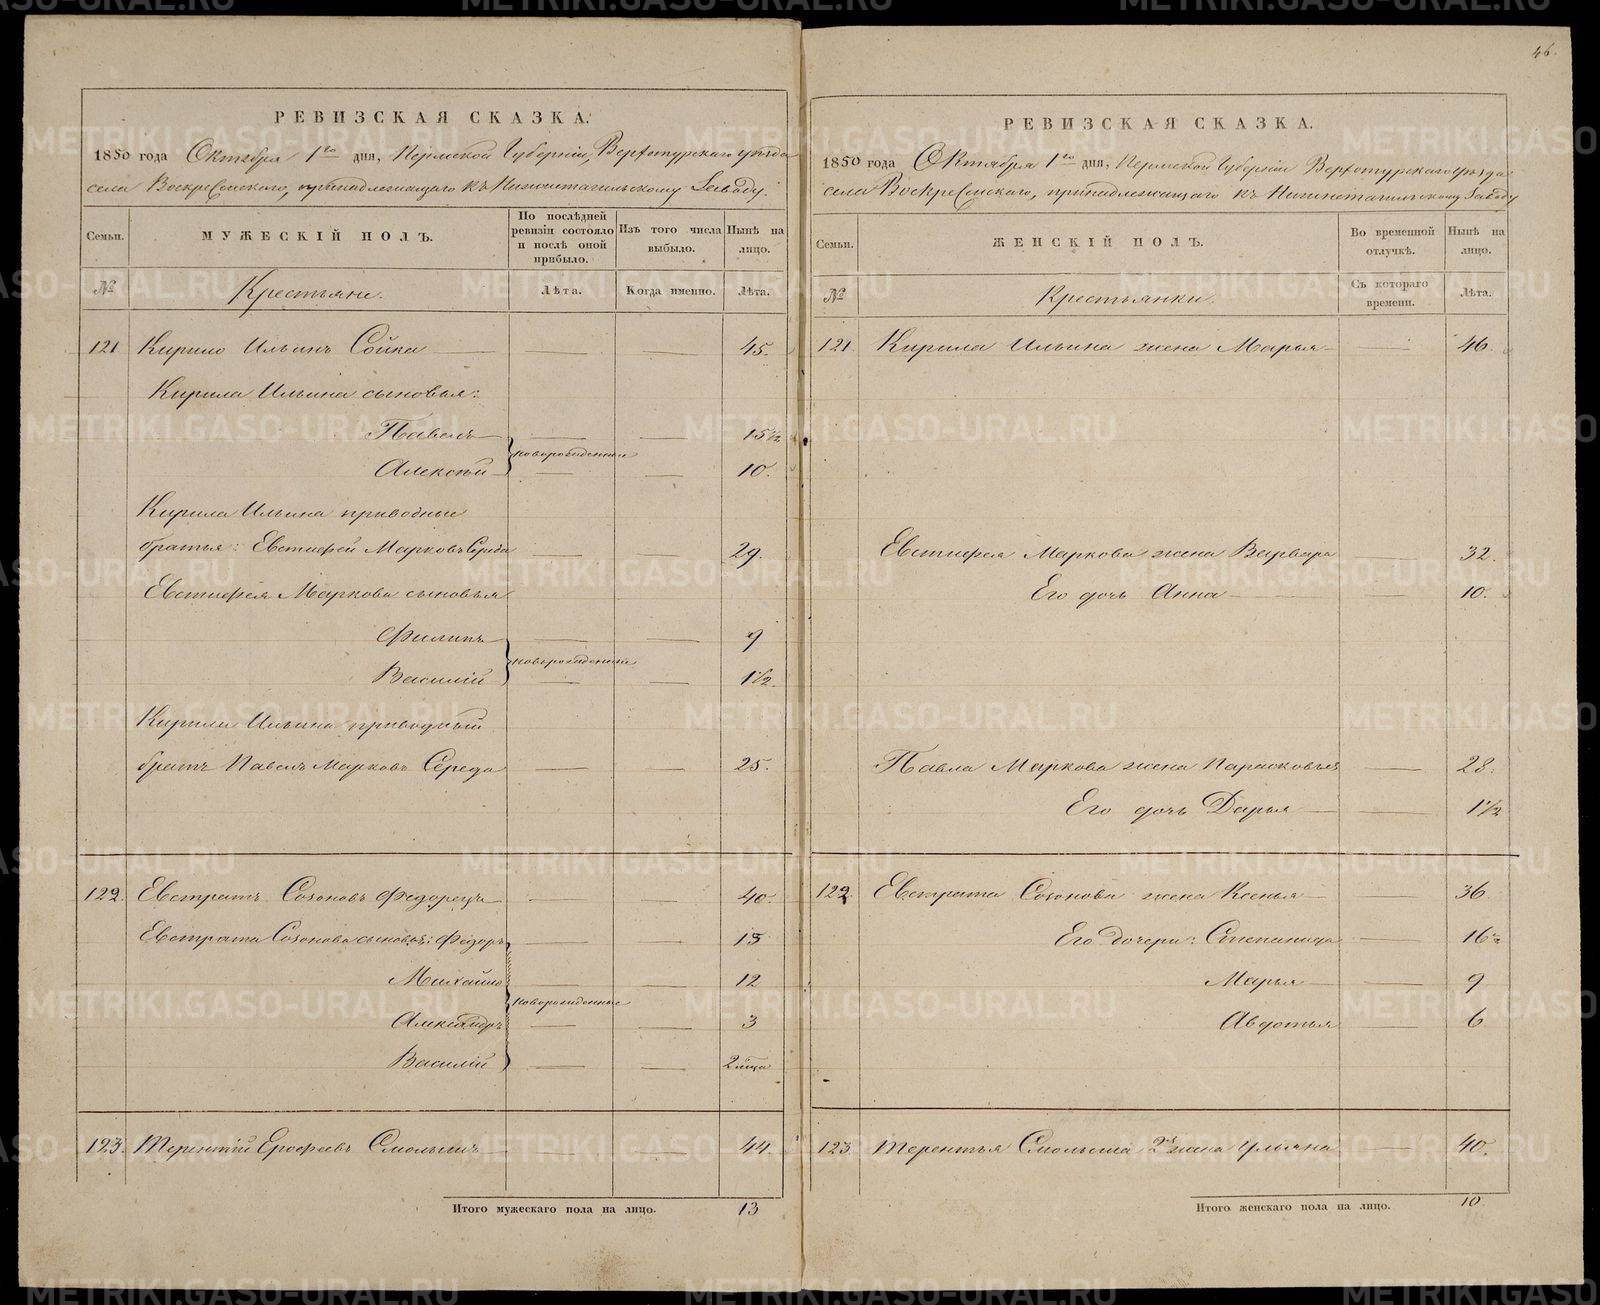 46.
РЕВИЗСКАЯ СКАЗКА.
1850 года Октября 1го дня, Пермской Губерніи, Верхотурскаго уѣзда
села Воскресенскаго, принадлежащаго къ Нижнетагильскому Заводу.
Семьи. МУЖЕСКІЙ ПОЛЪ. По послѣдней ревизіи состояло и послѣ оной прибыло. Изъ того числа выбыло. Нынѣ на лицо.
№ Крестьяне. Лѣта. Когда именно. Лѣта.
121 Кирило Ильинъ Сойка 45.
Кирила Ильина сыновья:
Павелъ 15½
новорожденные
Алексѣй 10.
Кирила Ильина приводные
братья: Евстифей Марковъ Середа 29.
Евстифея Маркова сыновья
Филипъ 9
новорожденные
Василій 1½
Кирила Ильина приводный
братъ Павелъ Марковъ Середа 25.
122. Евстратъ Созоновъ Федорецъ 40.
Евстрата Созонова сыновья: Федоръ 15
Михайло 12
новорожденные
Александръ 3
Василій 2 мѣсяца
123. Терентій Ерофеевъ 44.
Итого мужескаго пола на лицо. 13
РЕВИЗСКАЯ СКАЗКА.
1850 года Октября 1го дня, Пермской Губерніи Верхотурскаго уѣзда
села Воскресенскаго, принадлежащаго къ Нижнетагильскому Заводу
Семьи. ЖЕНСКІЙ ПОЛЪ. Во временной отлучкѣ. Нынѣ на лицо.
№ Крестьянки. Съ котораго времени. Лѣта.
121. Кирила Ильина жена Марья 46.
Евстифея Маркова жена Варвара 32.
Его дочь Анна 10.
Павла Маркова жена Парасковья 28.
Его дочь Дарья 1½
122. Евстрата Созонова жена Ксенья 36
Его дочери: Степанида 16
Марья 9
Авдотья 6
123. Терентья 2я жена Ульяна 40.
Итого женскаго пола на лицо. 10
METRIKI.GASO-URAL.RU